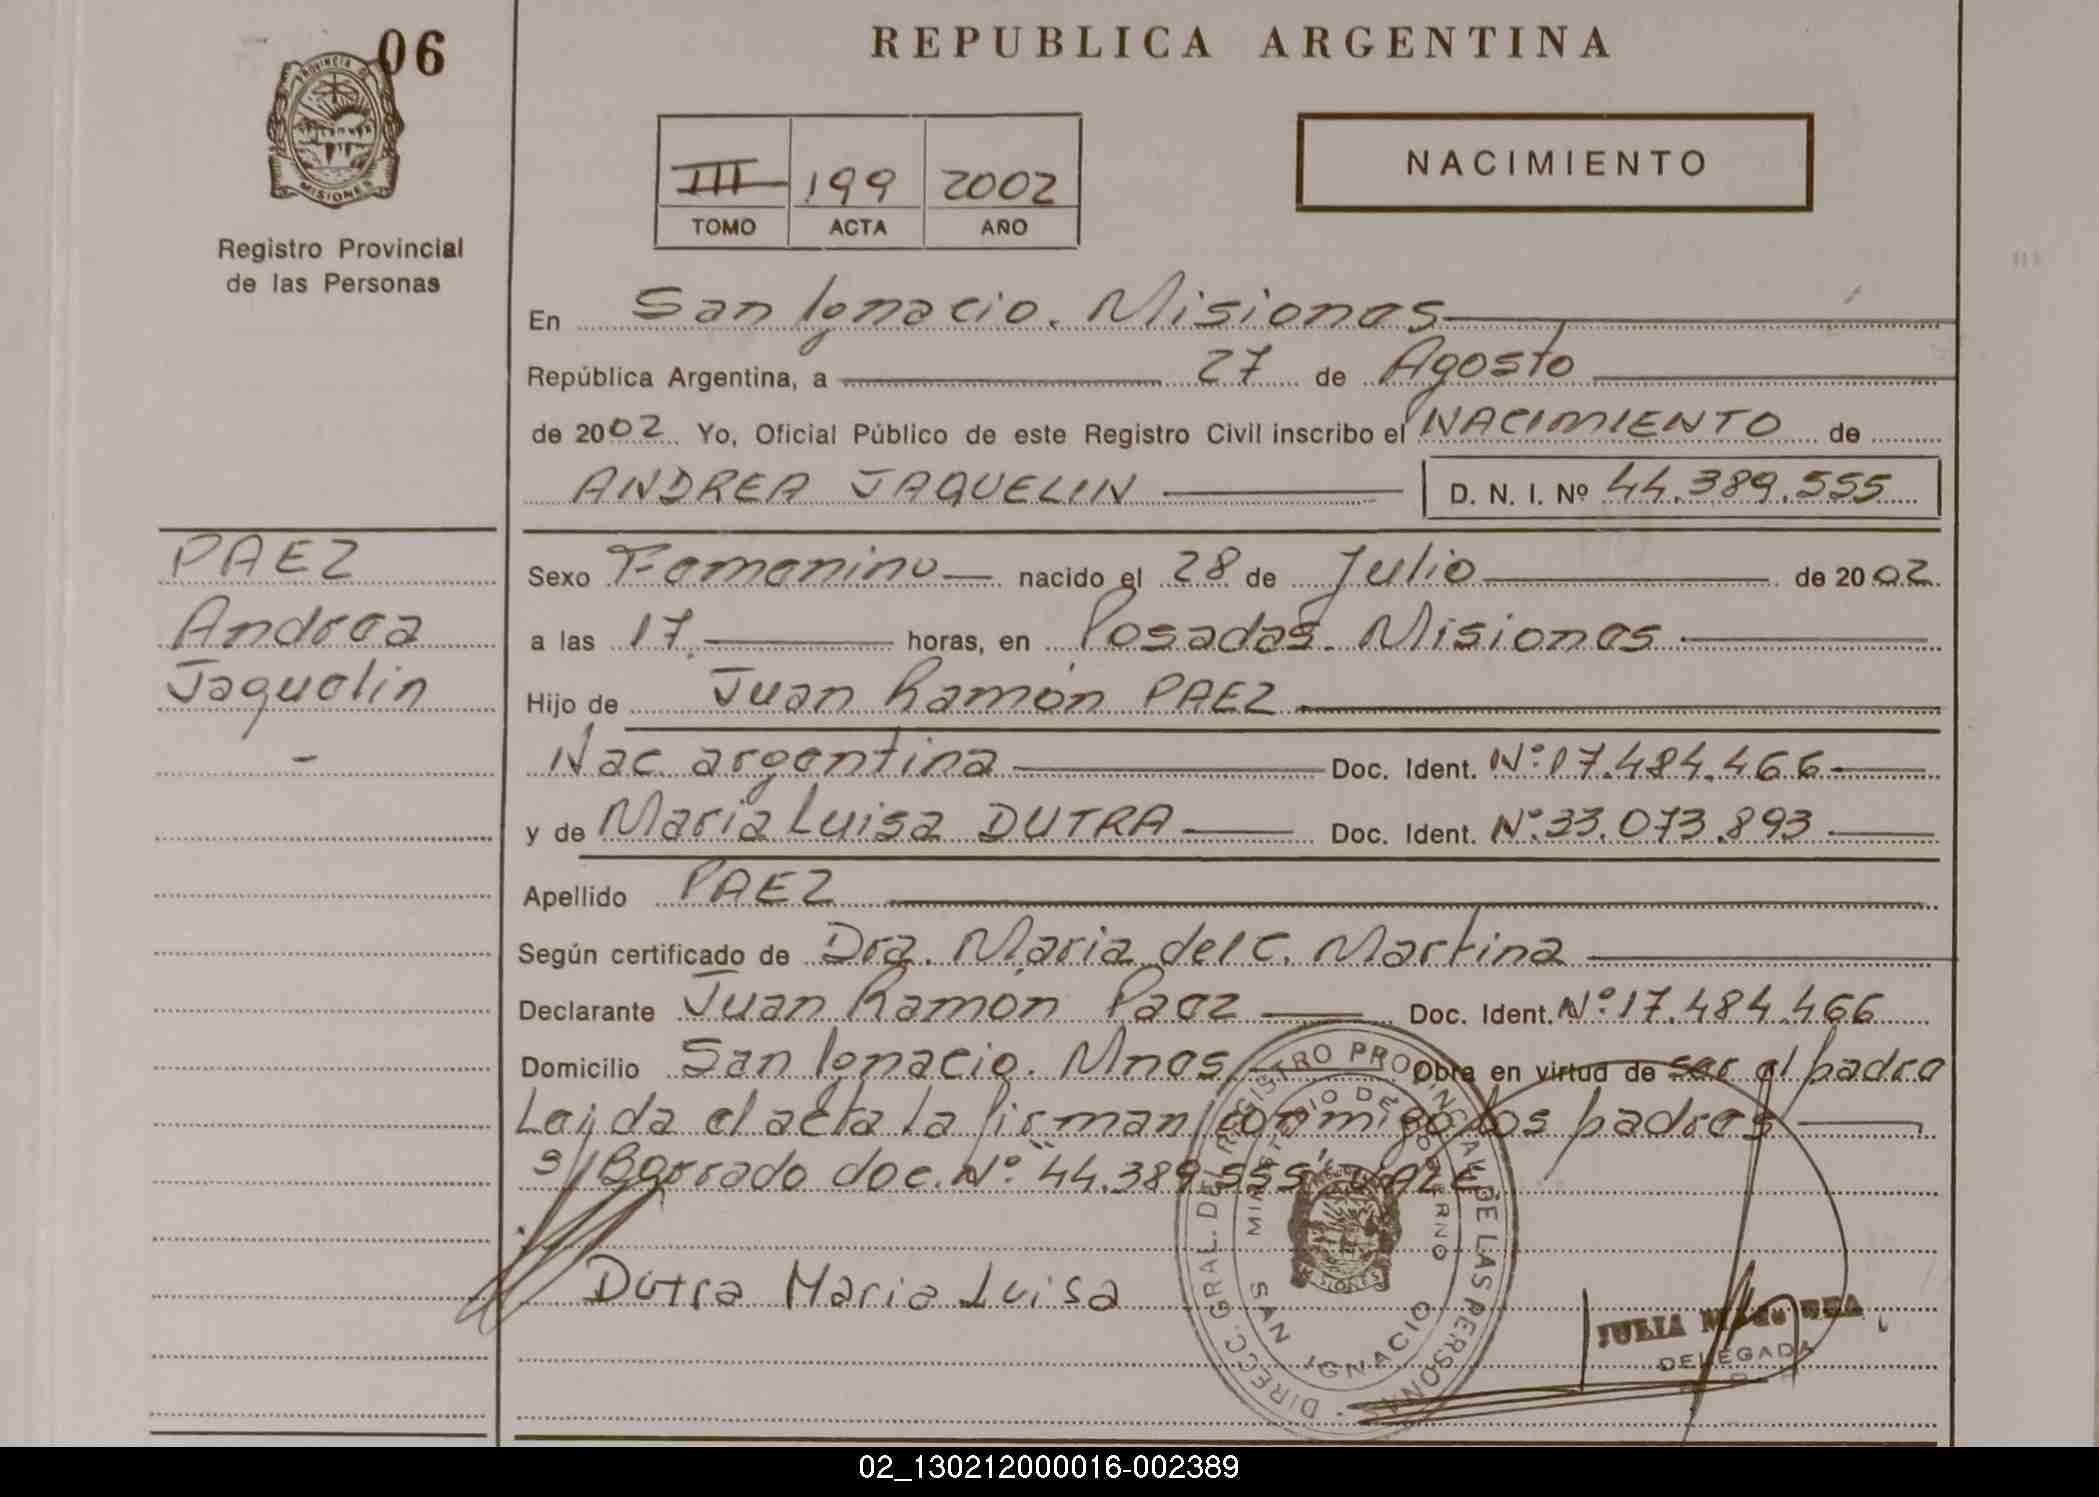 06
REPUBLICA ARGENTINA
PROVINCIA DE
MISIONES
Registro Provincial
de las Personas
III 199 2002
TOMO ACTA AÑO
NACIMIENTO
En San Ignacio. Misiones
República Argentina, a 27 de Agosto
de 2002 Yo, Oficial Público de este Registro Civil inscribo el NACIMIENTO de
ANDREA JAQUELIN D. N. I. Nº 44.389.555
PAEZ
Andrea
Jaquelin
-
Sexo Femenino nacido el 28 de Julio de 2002.
a las 17. horas, en Posadas. Misiones
Hijo de Juan Ramón PAEZ
Nac. argentina Doc. Ident. Nº 17.484.466
y de Maria Luisa DUTRA Doc. Ident. Nº 33.073.893
Apellido PAEZ
Según certificado de Dra. Maria del C. Martina
Declarante Juan Ramón Paez Doc. Ident. Nº 17.484.466
Domicilio San Ignacio. Mnes Obra en virtud de ser el padre
Leida el acta la firman conmigo los padres
s/Borrado doc. Nº "44.389.555" VALE
Dutra Maria Luisa
DIRECC. GRAL. DEL REGISTRO PROVINCIAL DE LAS PERSONAS
MINISTERIO DE GOBIERNO
SAN IGNACIO
MISIONES
JULIA
DELEGADA
02_130212000016-002389